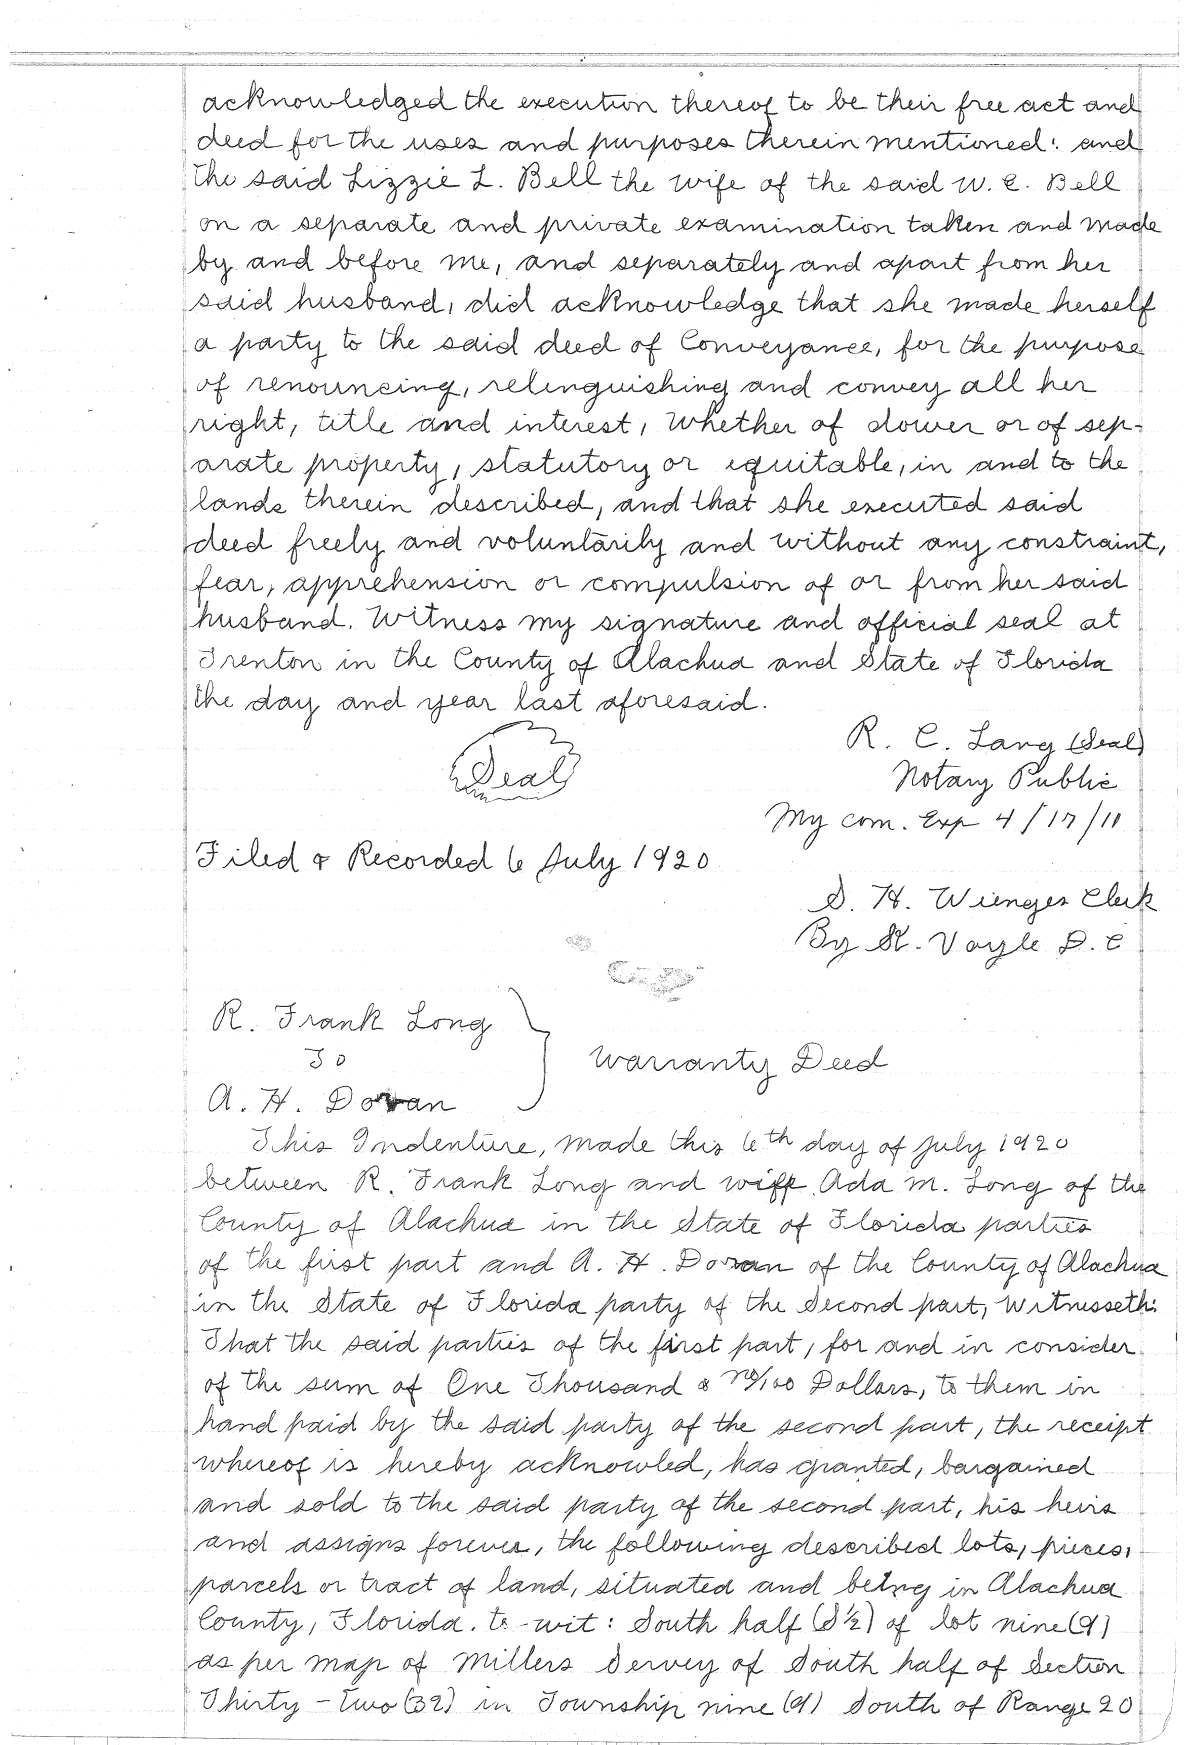 acknowledged the execution thereof to be their free act and
deed for the uses and purposes therein mentioned: and
the said Lizzie L. Bell the wife of the said W. C. Bell
on a separate and private examination taken and made
by and before me, and separately and apart from her
said husband, did acknowledge that she made herself
a party to the said deed of Conveyance, for the purpose
of renouncing, relinguishing and convey all her
right, title and interest, whether of dower or of sep-
arate property, statutory or equitable, in and to the
lands therein described, and that she executed said
deed freely and voluntarily and without any constraint,
fear, apprehension or compulsion of or from her said
husband. Witness my signature and official seal at
Trenton in the County of Alachua and State of Florida
the day and year last aforesaid.
R. C. Lang (Seal)
Seal
Notary Public
My com. Exp 4/17/11
Filed & Recorded 6 July 1920
S. H. Wienges Clerk
By K. Voyle D. C
R. Frank Long
To
Warranty Deed
A. H. Doran
This Indenture, made this 6th day of July 1920
between R. Frank Long and wife Ada M. Long of the
County of Alachua in the State of Florida parties
of the first part and A. H. Doran of the County of Alachua
in the State of Florida party of the Second part, Witnesseth:
That the said parties of the first part, for and in consider
of the sum of One Thousand & no/100 Dollars, to them in
hand paid by the said party of the second part, the receipt
whereof is hereby acknowled, has granted, bargained
and sold to the said party of the second part, his heirs
and assigns forever, the following described lots, pieces,
parcels or tract of land, situated and being in Alachua
County, Florida. to-wit: South half (S½) of lot nine (9)
as per map of Millers Servey of South half of Section
Thirty-two (32) in Township nine (9) South of Range 20